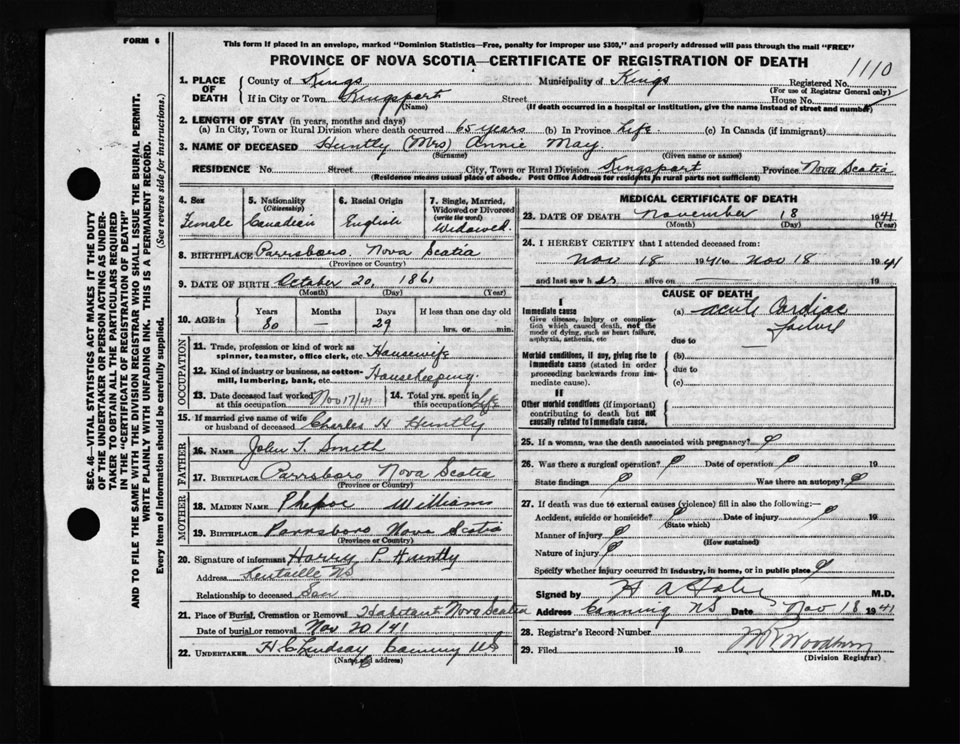 FORM 6
This form if placed in an envelope, marked "Dominion Statistics—Free, penalty for improper use $300," and properly addressed will pass through the mail "FREE"
PROVINCE OF NOVA SCOTIA—CERTIFICATE OF REGISTRATION OF DEATH
1110
SEC. 46—VITAL STATISTICS ACT MAKES IT THE DUTY
OF THE UNDERTAKER OR PERSON ACTING AS UNDER-
TAKER TO OBTAIN ALL THE PARTICULARS REQUIRED
IN THE "CERTIFICATE OF REGISTRATION OF DEATH"
AND TO FILE THE SAME WITH THE DIVISION REGISTRAR WHO SHALL ISSUE THE BURIAL PERMIT.
WRITE PLAINLY WITH UNFADING INK. THIS IS A PERMANENT RECORD.
Every item of information should be carefully supplied. (See reverse side for instructions.)
1. PLACE OF DEATH
County of Kings Municipality of Kings Registered No.
(For use of Registrar General only)
If in City or Town Kingsport Street House No.
(Name) (If death occurred in a hospital or institution, give the name instead of street and number)
2. LENGTH OF STAY (in years, months and days)
(a) In City, Town or Rural Division where death occurred 65 years (b) In Province Life (c) In Canada (if immigrant)
3. NAME OF DECEASED Huntly (Mrs) Annie May
(Surname) (Given name or names)
RESIDENCE No. Street City, Town or Rural Division Kingsport Province Nova Scotia
(Residence means usual place of abode. Post Office Address for residents in rural parts not sufficient)
4. Sex
Female
5. Nationality
(Citizenship)
Canadian
6. Racial Origin
English
7. Single, Married,
Widowed or Divorced
(write the word)
Widowed
8. BIRTHPLACE Parrsboro Nova Scotia
(Province or Country)
9. DATE OF BIRTH October 20, 1861
(Month) (Day) (Year)
10. AGE in Years Months Days If less than one day old
80 — 29 hrs. or min.
OCCUPATION
11. Trade, profession or kind of work as
spinner, teamster, office clerk, etc. Housewife
12. Kind of industry or business, as cotton-
mill, lumbering, bank, etc. Housekeeping
13. Date deceased last worked
at this occupation Nov 17/41
14. Total yrs. spent in
this occupation Life
15. If married give name of wife
or husband of deceased Charles H Huntly
FATHER
16. NAME John T. Smith
17. BIRTHPLACE Parrsboro Nova Scotia
(Province or Country)
MOTHER
18. MAIDEN NAME Williams
19. BIRTHPLACE Parrsboro Nova Scotia
(Province or Country)
20. Signature of informant Harry P. Huntly
Address Kentville NS
Relationship to deceased Son
21. Place of Burial, Cremation or Removal Habitant Nova Scotia
Date of burial or removal Nov 20/41
22. UNDERTAKER H C Lindsay Canning NS
(Name and address)
MEDICAL CERTIFICATE OF DEATH
23. DATE OF DEATH November 18 1941
(Month) (Day) (Year)
24. I HEREBY CERTIFY that I attended deceased from:
Nov 18 1941 to Nov 18 1941
and last saw h er alive on 19
CAUSE OF DEATH
I
Immediate cause
Give disease, injury or complica-
tion which caused death, not the
mode of dying, such as heart failure,
asphyxia, asthenia, etc
(a) acute Cardiac
failure
due to
Morbid conditions, if any, giving rise to
immediate cause (stated in order
proceeding backwards from im-
mediate cause).
(b)
due to
(c)
II
Other morbid conditions (if important)
contributing to death but not
causally related to immediate cause.
25. If a woman, was the death associated with pregnancy?
26. Was there a surgical operation? Date of operation 19
State findings Was there an autopsy?
27. If death was due to external causes (violence) fill in also the following:—
Accident, suicide or homicide? Date of injury 19
(State which)
Manner of injury
(How sustained)
Nature of injury
Specify whether injury occurred in industry, in home, or in public place
Signed by H A M.D.
Address Canning NS Date Nov 18 1941
28. Registrar's Record Number
29. Filed 19
(Division Registrar)